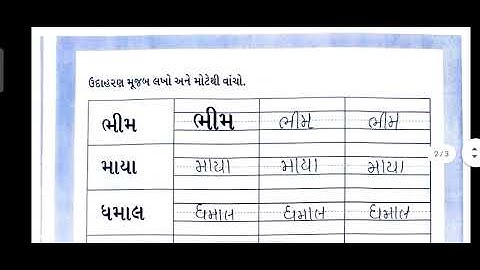 ઉદાહરણ મૂજબ લખો અને મોટેથી વાંચો.
ભીમ ભીમ ભીમ ભીમ
માયા માયા માયા માયા
2/3
ધમાલ ધમાલ ધમાલ ધમાલ